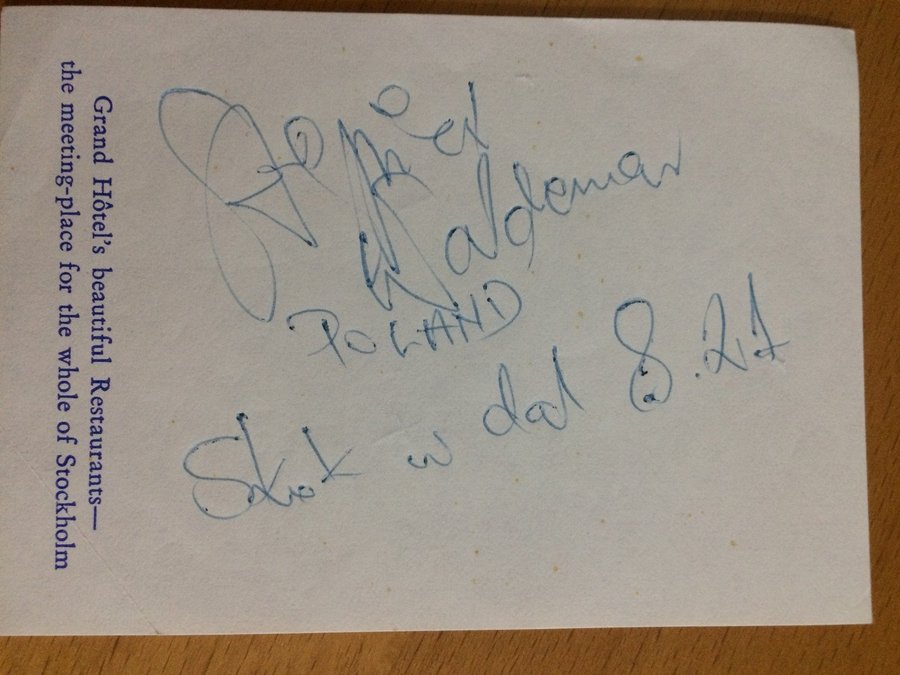 Waldemar
POLAND
Skok w dal 8.21
Grand Hôtel's beautiful Restaurants—
the meeting-place for the whole of Stockholm